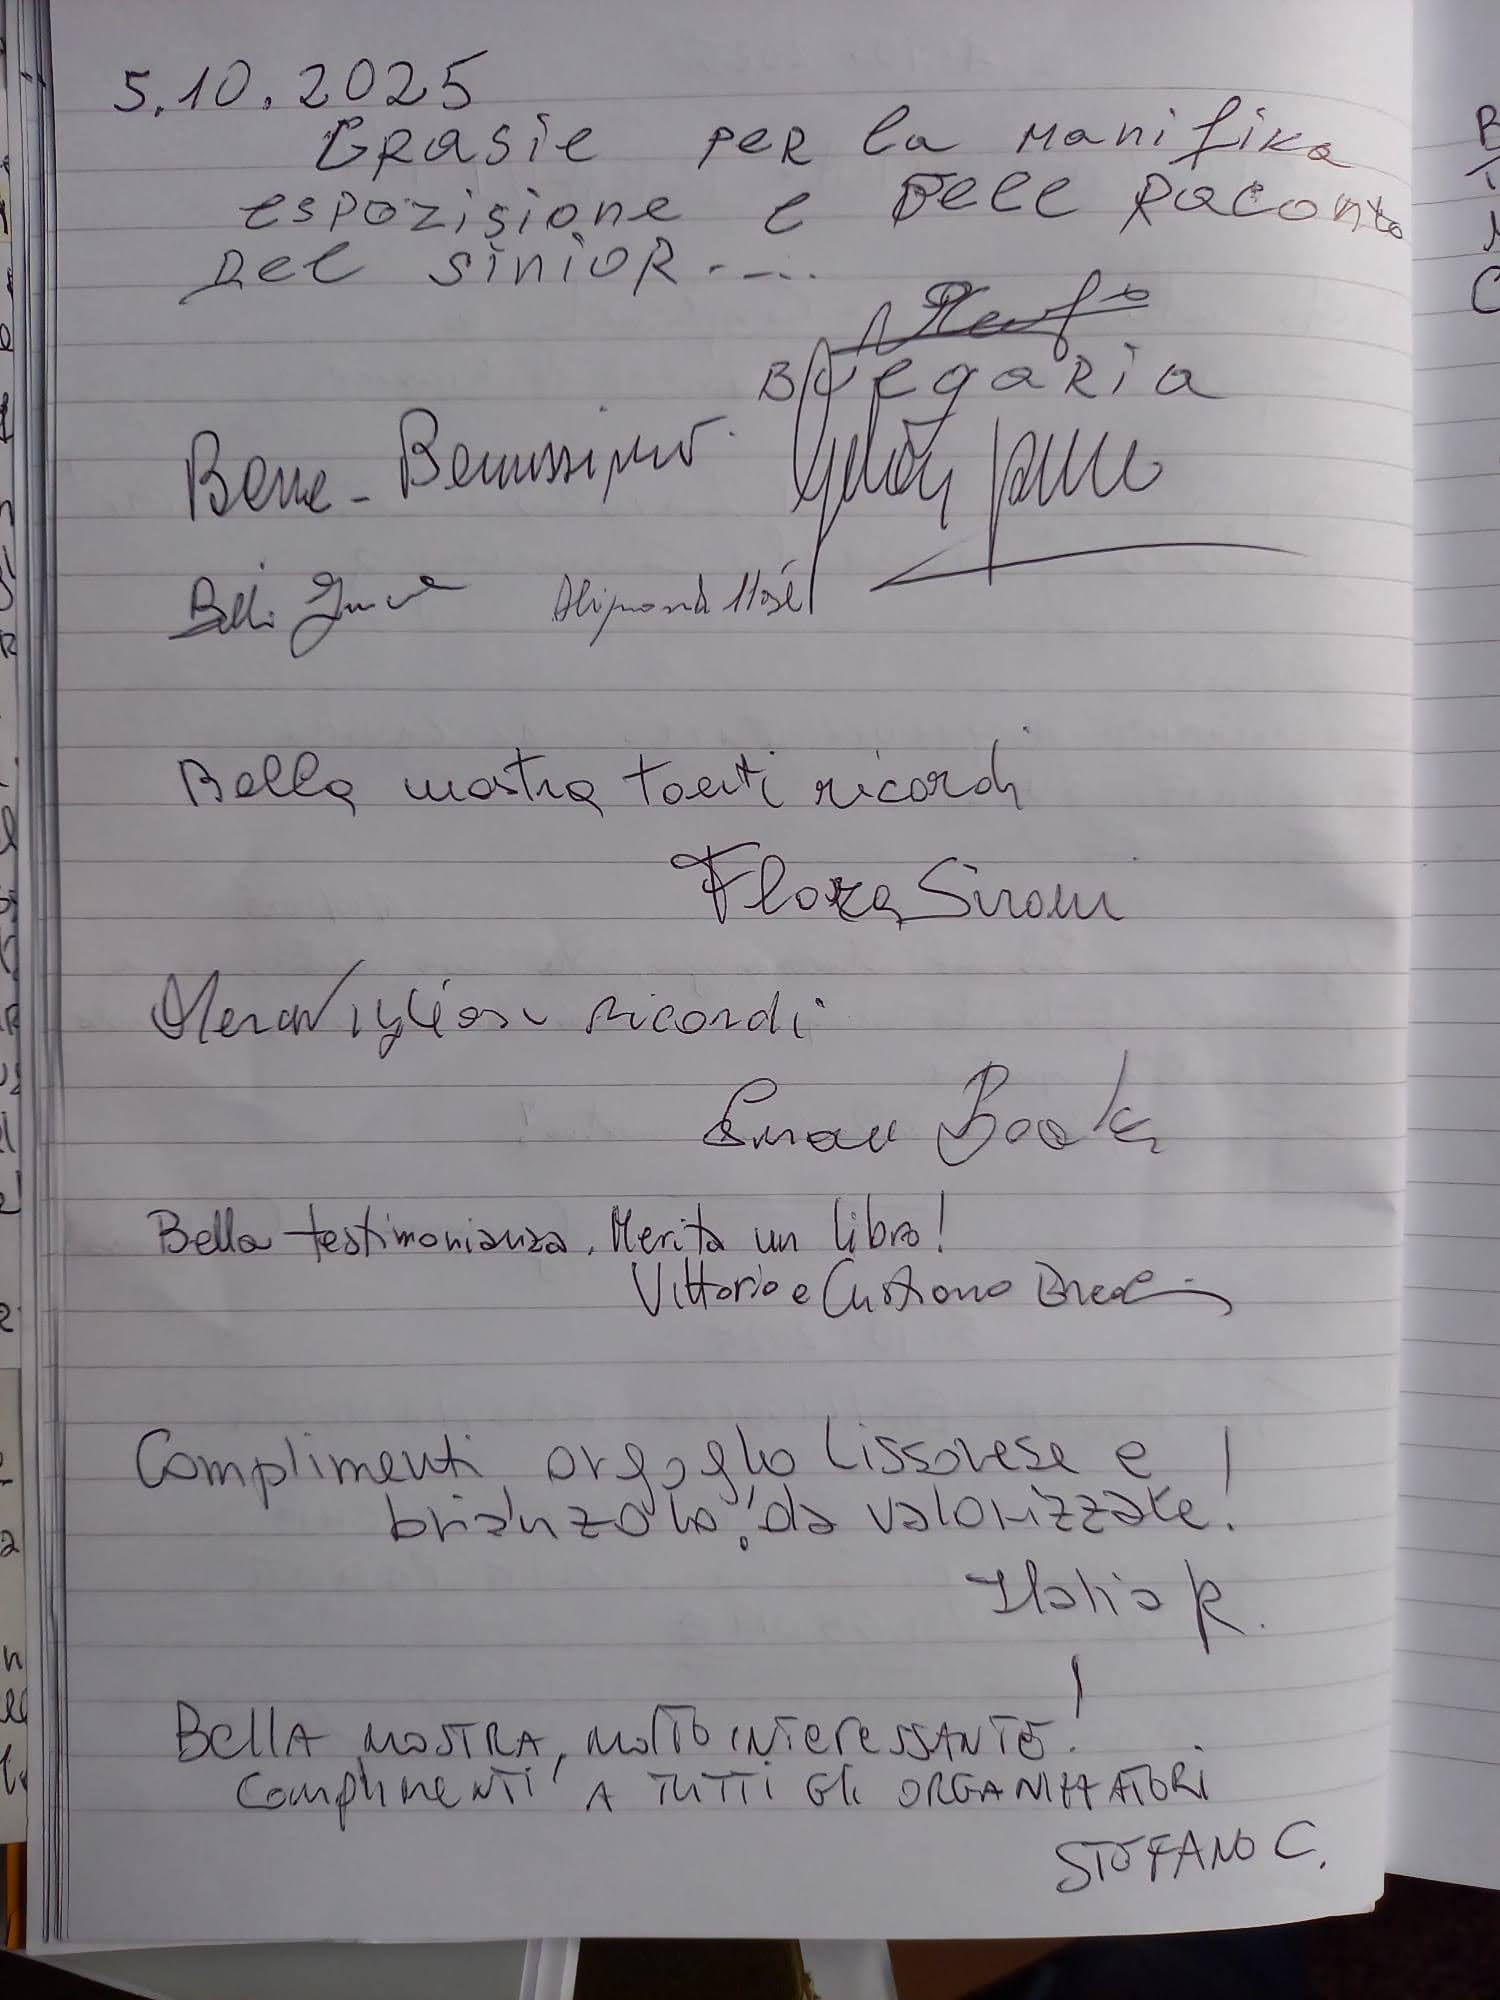 5.10.2025
Grasie per la manifika
espozisione e dell Raconto
del sinior....
Bulegaria
Bene - Benissimo.
Bella mostra tanti ricordi
Flora Sironi
Meravigliosi ricordi
Bella testimonianza. Merita un libro!
Vittorio e Cristiano
Complimenti orgoglio lissonese e
brianzolo, da valorizzare!
Ilaria R.
BELLA MOSTRA, MOLTO INTERESSANTE!
COMPLIMENTI A TUTTI GLI ORGANIZZATORI
STEFANO C.